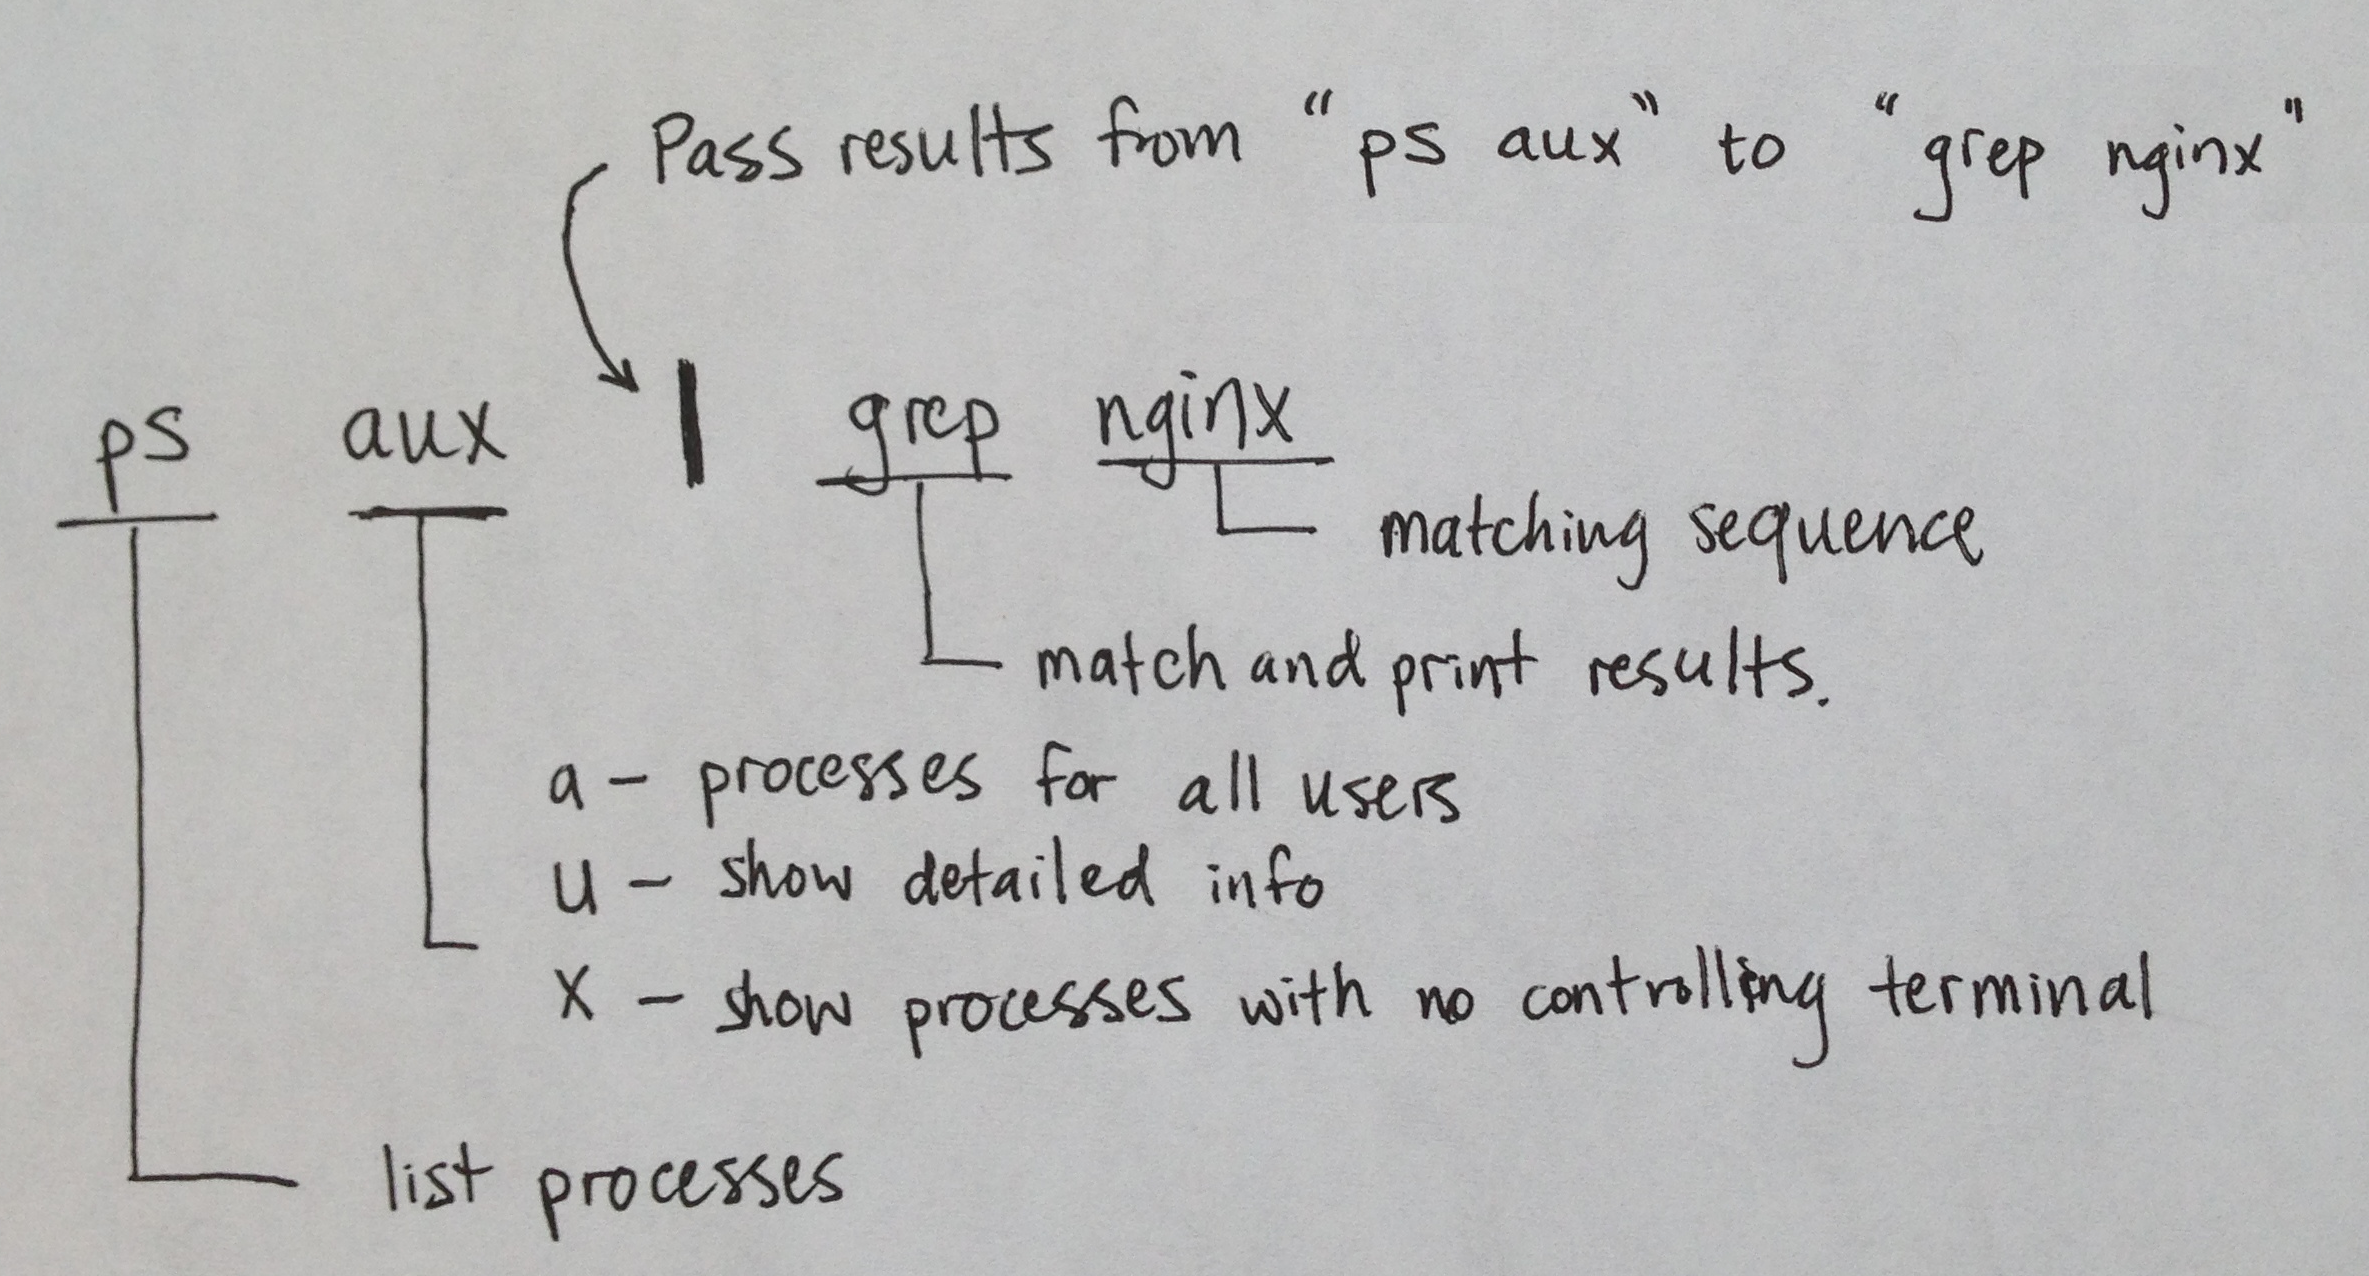 Pass results from “ps aux” to “grep nginx”
ps aux | grep nginx
matching sequence
match and print results.
a - processes for all users
u - show detailed info
x - show processes with no controlling terminal
list processes